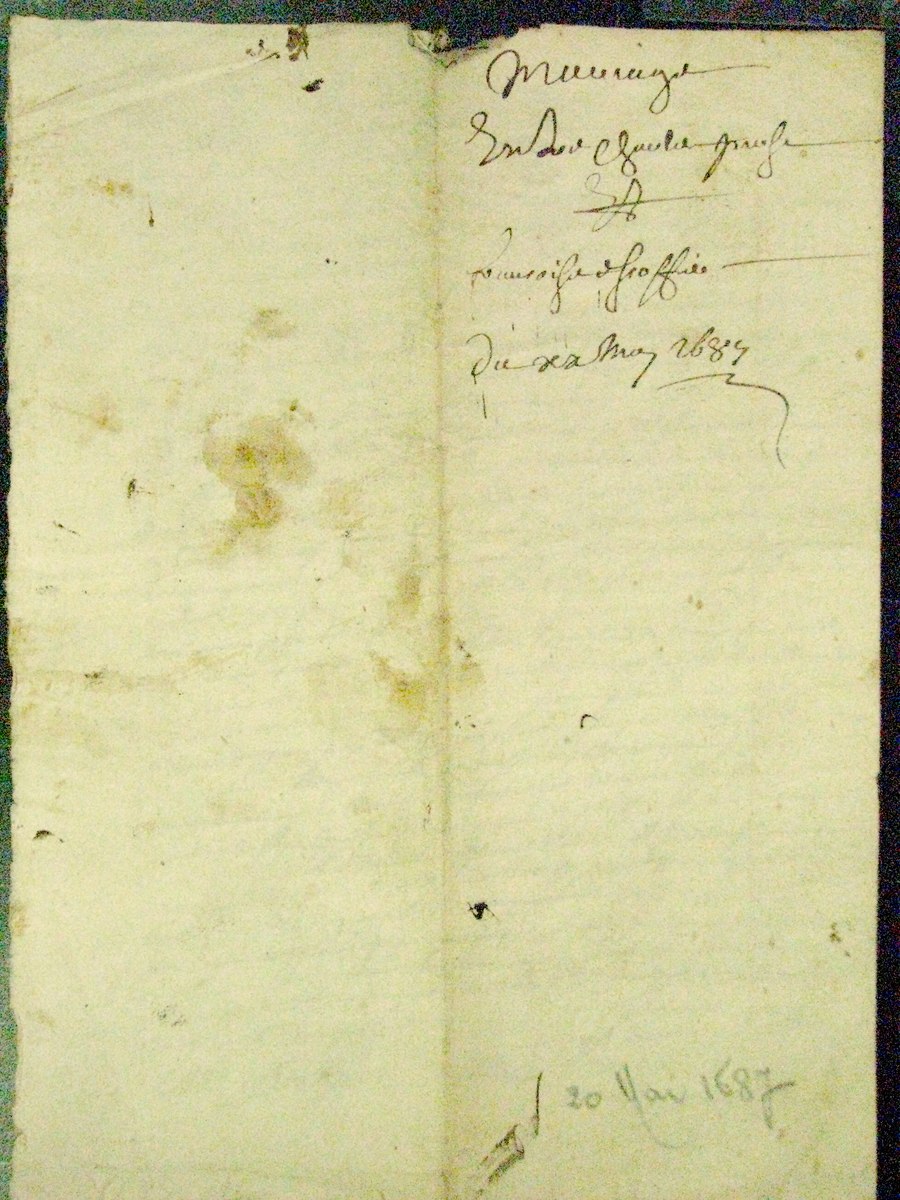 Mariage
Entre Charle
Et
francoise
Du xx May 1687
20 Mai 1687